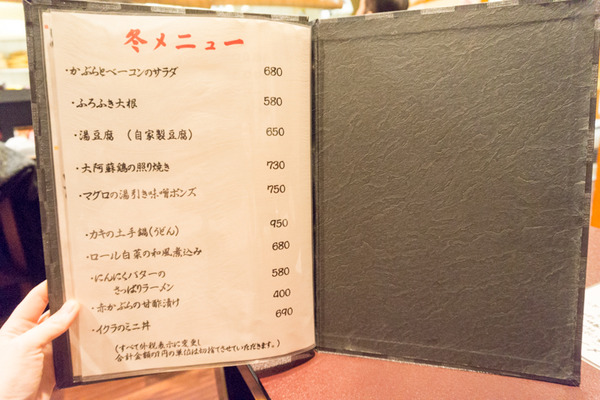 冬メニュー
・かぶらとベーコンのサラダ 680
・ふろふき大根 580
・湯豆腐 (自家製豆腐) 650
・大阿蘇鶏の照り焼き 730
・マグロの湯引き味噌ポンズ 750
・カキの土手鍋(うどん) 950
・ロール白菜の和風煮込み 680
・にんにくバターの
さっぱりラーメン 580
・赤かぶらの甘酢漬け 400
・イクラのミニ丼 690
(すべて外税表示に変更し
合計金額の1円の単位は切捨てさせていただきます。)